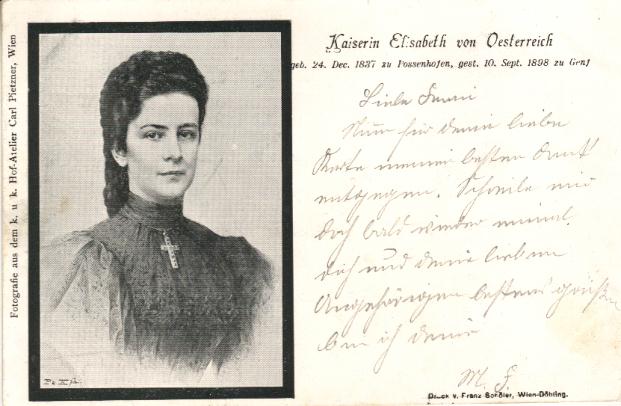 Fotografie aus dem k. u. k. Hof-Atelier Carl Pietzner, Wien
Kaiserin Elisabeth von Oesterreich
geb. 24. Dec. 1837 zu Possenhofen, gest. 10. Sept. 1898 zu Genf
Liebe
Nimm für deine liebe
Karte meinen besten Dank
entgegen. Schreibe mir
doch bald wieder einmal.
dich und deine lieben
Angehörigen bestens grüßen
bin ich deine
M. F.
Druck v. Franz Schöler, Wien-Döbling.